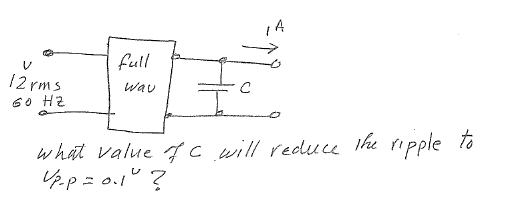 1 A
full
wav
C
V
12 rms
60 HZ
what value of C will reduce the ripple to
Vp-p = 0.1 V ?